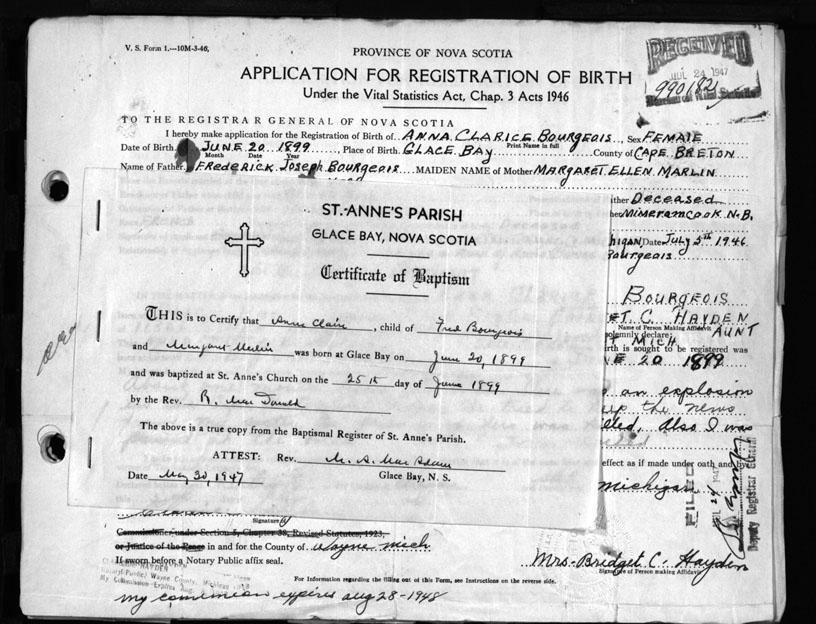 V. S. Form 1.—10M-3-46.
PROVINCE OF NOVA SCOTIA
APPLICATION FOR REGISTRATION OF BIRTH
Under the Vital Statistics Act, Chap. 3 Acts 1946
RECEIVED
JUL 24 1947
990182
TO THE REGISTRAR GENERAL OF NOVA SCOTIA
I hereby make application for the Registration of Birth of ANNA CLARICE BOURGEOIS, Sex FEMALE
Print Name in full
Date of Birth JUNE 20 1899 Place of Birth GLACE BAY County of CAPE BRETON
Month Date Year
Name of Father FREDERICK JOSEPH BOURGEOIS MAIDEN NAME of Mother MARGARET ELLEN MARLIN
ther Deceased
her MIMERAMCOOK N.B.
higan Date July 5th 1946
Bourgeois
BOURGEOIS
ET C. HAYDEN
Name of Person Making Affidavit
solemnly declare: AUNT
T MICH
irth is sought to be registered was
NE 20 1899
an explosion
the news
Also I was
effect as if made under oath and by
Michigan
FILED
JUL 24 1947
Deputy Registrar General
ST. ANNE'S PARISH
GLACE BAY, NOVA SCOTIA
Certificate of Baptism
THIS is to Certify that Anne Claire, child of Fred Bourgeois
and Margaret Merlin was born at Glace Bay on June 20, 1899
and was baptized at St. Anne's Church on the 25th day of June 1899
by the Rev. R. Mac Donald
The above is a true copy from the Baptismal Register of St. Anne's Parish.
ATTEST: Rev. M. A. Mac Adam
Date May 30, 1947 Glace Bay, N. S.
Signature of
Commissioner under Section 5, Chapter 38, Revised Statutes, 1923,
or Justice of the Peace in and for the County of Wayne Mich
If sworn before a Notary Public affix seal.
Mrs. Bridget C. Hayden
Signature of Person making Affidavit
HAYDEN
Notary Public, Wayne County, Michigan
My Commission Expires Aug.
For Information regarding the filling out of this Form, see Instructions on the reverse side.
my commission expires aug 28-1948